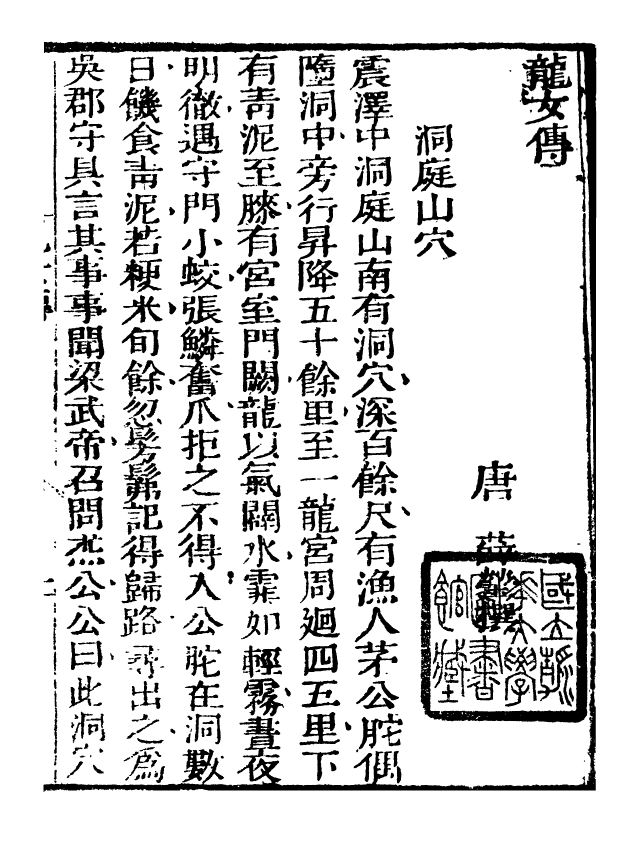 龍女傳
唐 薛
洞庭山穴
震澤中洞庭山南有洞穴深百餘尺有漁人茅公𦙀偶
墮洞中旁行昇降五十餘里至一龍宮周廻四五里下
有青泥至膝有宮室門闕龍以氣闢水霏如輕霧晝夜
明徹遇守門小蛟張鱗奮爪拒之不得入公𦙀在洞數
日饑食青泥若粳米旬餘忽髣髴記得歸路尋出之爲
吳郡守具言其事事聞梁武帝召問杰公公曰此洞穴